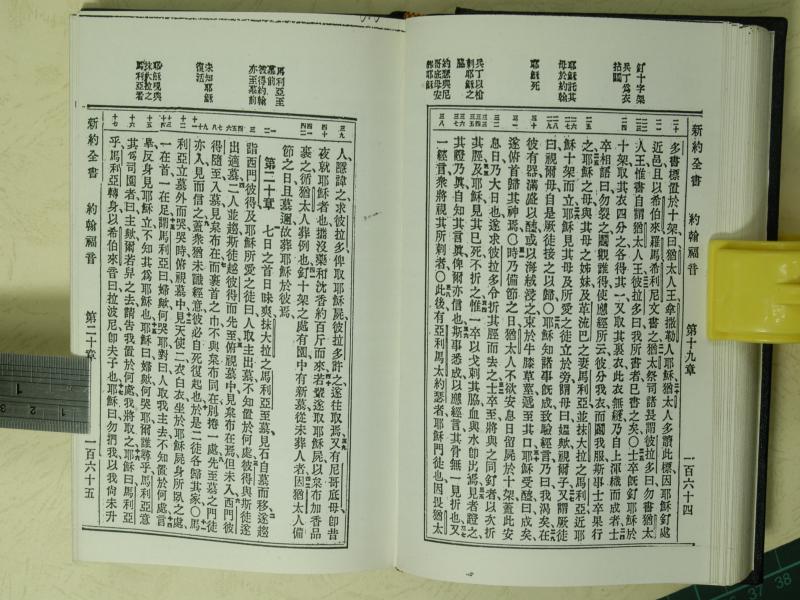 釘十字架
兵丁爲衣
拈鬮
耶穌託其
母於約翰
耶穌死
兵丁以槍
刺耶穌之
脇
約瑟與尼
哥底母安
葬耶穌
新約全書 約翰福音 第十九章 一百六十四
多書標置於十架曰猶太人王拿撒勒人耶穌猶太人多讀此標因耶穌釘處
近邑且以希伯來羅馬希利尼文書之猶太祭司諸長謂彼拉多曰勿書猶太
人王惟書自謂猶太人王彼拉多曰我所書者已書之矣○士卒既釘耶穌於
十架取其衣四分之各得其一又取其裏衣此衣無縫乃自上渾織而成者士
卒相語曰勿裂之鬮觀誰得使應經所云彼分我衣而鬮我服斯事士卒果行
之耶穌之母與其母之姊妹及革流巴之妻馬利亞並抹大拉之馬利亞近耶
穌十架而立耶穌見其母及所愛之徒立於旁謂母曰媼歟視爾子又謂厥徒
曰視爾母自是厥徒接之以歸○耶穌知諸事既成致驗經言乃曰我渴矣在
彼有器滿盛以醯或以海絨浸之束於牛膝草葉遞至其口耶穌受醯曰成矣
遂俯首歸其神焉○時乃備節之日猶太人不欲安息日留屍於十架蓋此安
息日乃大日也遂求彼拉多令折其脛而去之士卒至將與之同釘者以次折
其脛及耶穌見其已死不折之惟一卒以戈刺其脇血與水卽出焉見者證之
其證乃眞自知其言眞俾爾亦信也斯事悉成以應經言其骨無一見折也又
一經言衆將視其所刺者○此後有亞利馬太約瑟者耶穌門徒也因畏猶太
馬利亞至
墓前
彼得約翰
亦至墓前
未知耶穌
復活
耶穌現與
抹大拉之
馬利亞看
人隱諱之求彼拉多俾取耶穌屍彼拉多許之遂往取焉又有尼哥底母卽昔
夜就耶穌者也攜沒藥和沈香約百斤而來若輩遂取耶穌屍以枲布加香品
裹之循猶太人葬例也釘十架之處有園中有新墓從未葬人者因猶太人備
節之日且墓邇故葬耶穌於彼焉
第二十章 七日之首日昧爽抹大拉之馬利亞至墓見石自墓而移遂趨
詣西門彼得及耶穌所愛之徒曰人取主出墓不知置於何處彼得與斯徒遂
出適墓二人並趨斯徒越彼得而先至俯視墓中見枲布在焉但未入西門彼
得隨至入墓見枲布在而裹首之巾不與枲布同在別捲一處先至墓之門徒
亦入見而信之蓋衆猶未識經意彼必自死復起也於是二徒各歸其家○馬
利亞立墓外而哭哭時俯視墓中見天使二衣白衣坐於耶穌屍身所臥之處
一在首一在足謂馬利亞曰婦歟何哭耶對曰人取我主去不知置於何處言
畢反身見耶穌立不知其爲耶穌也耶穌曰婦歟何哭耶爾誰尋乎馬利亞意
其爲司園者曰主歟爾若舁之去請告我置於何處我將取之耶穌曰馬利亞
乎馬利亞轉身以希伯來音曰拉波尼卽夫子也耶穌曰勿捫我以我尚未升
新約全書 約翰福音 第二十章 一百六十五
1
2
37
38